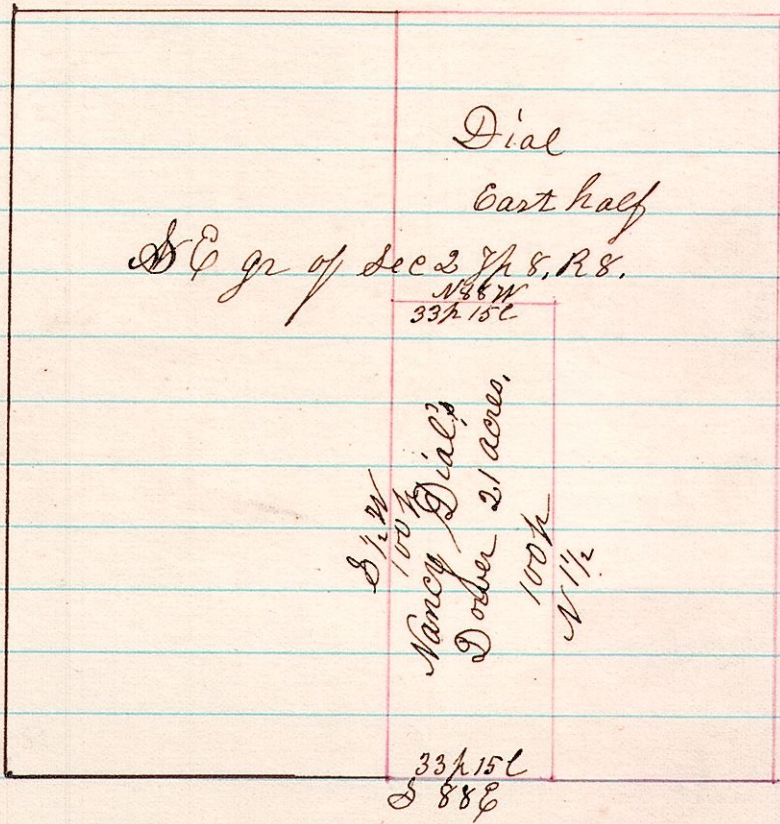 Dial
East half
S E qr of Sec 2 Tp 8, R 8.
N 88 W
33p 15l
S 1/2 W
100 p
Nancy Dial's
Dower 21 acres,
100 p
N 1 1/2
33p 15l
S 88 E